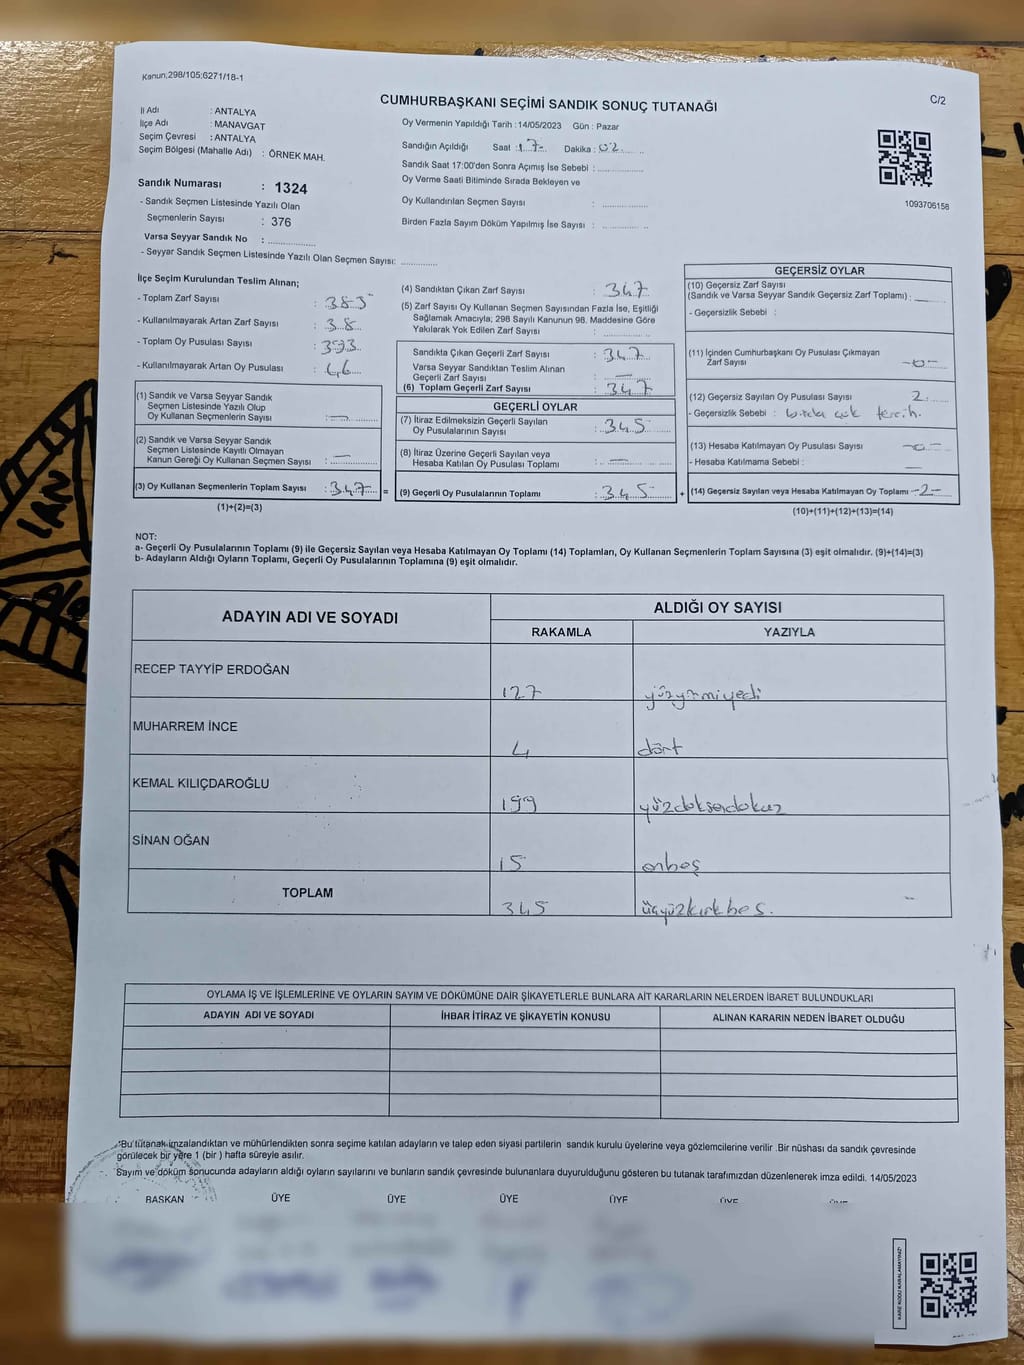 Kanun;298/105;6271/18-1
CUMHURBAŞKANI SEÇİMİ SANDIK SONUÇ TUTANAĞI
C/2
İl Adı : ANTALYA
İlçe Adı : MANAVGAT
Seçim Çevresi : ANTALYA
Seçim Bölgesi (Mahalle Adı) : ÖRNEK MAH.
Sandık Numarası : 1324
- Sandık Seçmen Listesinde Yazılı Olan
Seçmenlerin Sayısı : 376
Varsa Seyyar Sandık No : ..............
- Seyyar Sandık Seçmen Listesinde Yazılı Olan Seçmen Sayısı: ............
Oy Vermenin Yapıldığı Tarih : 14/05/2023 Gün : Pazar
Sandığın Açıldığı Saat : 17 Dakika : 02
Sandık Saat 17:00'den Sonra Açımış İse Sebebi : ..............
Oy Verme Saati Bitiminde Sırada Bekleyen ve
Oy Kullandırılan Seçmen Sayısı : ..............
Birden Fazla Sayım Döküm Yapılmış İse Sayısı : ..............
1093706158
İlçe Seçim Kurulundan Teslim Alınan;
- Toplam Zarf Sayısı : 385
- Kullanılmayarak Artan Zarf Sayısı : 38
- Toplam Oy Pusulası Sayısı : 393
- Kullanılmayarak Artan Oy Pusulası : 46
(1) Sandık ve Varsa Seyyar Sandık
Seçmen Listesinde Yazılı Olup
Oy Kullanan Seçmenlerin Sayısı : —
(2) Sandık ve Varsa Seyyar Sandık
Seçmen Listesinde Kayıtlı Olmayan
Kanun Gereği Oy Kullanan Seçmen Sayısı : —
(3) Oy Kullanan Seçmenlerin Toplam Sayısı : 347 =
(1)+(2)=(3)
(4) Sandıktan Çıkan Zarf Sayısı : 347
(5) Zarf Sayısı Oy Kullanan Seçmen Sayısından Fazla İse, Eşitliği
Sağlamak Amacıyla; 298 Sayılı Kanunun 98. Maddesine Göre
Yakılarak Yok Edilen Zarf Sayısı : ..............
Sandıkta Çıkan Geçerli Zarf Sayısı : 347
Varsa Seyyar Sandıktan Teslim Alınan
Geçerli Zarf Sayısı : —
(6) Toplam Geçerli Zarf Sayısı : 347
GEÇERLİ OYLAR
(7) İtiraz Edilmeksizin Geçerli Sayılan
Oy Pusulalarının Sayısı : 345
(8) İtiraz Üzerine Geçerli Sayılan veya
Hesaba Katılan Oy Pusulası Toplamı : —
(9) Geçerli Oy Pusulalarının Toplamı : 345 +
GEÇERSİZ OYLAR
(10) Geçersiz Zarf Sayısı
(Sandık ve Varsa Seyyar Sandık Geçersiz Zarf Toplamı) : ......
- Geçersizlik Sebebi :
(11) İçinden Cumhurbaşkanı Oy Pusulası Çıkmayan
Zarf Sayısı -0-
(12) Geçersiz Sayılan Oy Pusulası Sayısı 2
- Geçersizlik Sebebi : birden çok tercih.
(13) Hesaba Katılmayan Oy Pusulası Sayısı -0-
- Hesaba Katılmama Sebebi : —
(14) Geçersiz Sayılan veya Hesaba Katılmayan Oy Toplamı -2-
(10)+(11)+(12)+(13)=(14)
NOT:
a- Geçerli Oy Pusulalarının Toplamı (9) ile Geçersiz Sayılan veya Hesaba Katılmayan Oy Toplamı (14) Toplamları, Oy Kullanan Seçmenlerin Toplam Sayısına (3) eşit olmalıdır. (9)+(14)=(3)
b- Adayların Aldığı Oyların Toplamı, Geçerli Oy Pusulalarının Toplamına (9) eşit olmalıdır.
ADAYIN ADI VE SOYADI ALDIĞI OY SAYISI
RAKAMLA YAZIYLA
RECEP TAYYİP ERDOĞAN 127 yüzyirmiyedi
MUHARREM İNCE 4 dört
KEMAL KILIÇDAROĞLU 199 yüzdoksandokuz
SİNAN OĞAN 15 onbeş
TOPLAM 345 üçyüzkırkbeş.
OYLAMA İŞ VE İŞLEMLERİNE VE OYLARIN SAYIM VE DÖKÜMÜNE DAİR ŞİKAYETLERLE BUNLARA AİT KARARLARIN NELERDEN İBARET BULUNDUKLARI
ADAYIN ADI VE SOYADI İHBAR İTİRAZ VE ŞİKAYETİN KONUSU ALINAN KARARIN NEDEN İBARET OLDUĞU
*Bu tutanak imzalandıktan ve mühürlendikten sonra seçime katılan adayların ve talep eden siyasi partilerin sandık kurulu üyelerine veya gözlemcilerine verilir .Bir nüshası da sandık çevresinde
görülecek bir yere 1 (bir ) hafta süreyle asılır.
Sayım ve döküm sonucunda adayların aldığı oyların sayılarını ve bunların sandık çevresinde bulunanlara duyurulduğunu gösteren bu tutanak tarafımızdan düzenlenerek imza edildi. 14/05/2023
BAŞKAN ÜYE ÜYE ÜYE ÜYE ÜYE ÜYE
KARE KODU KARALAMAYINIZ!